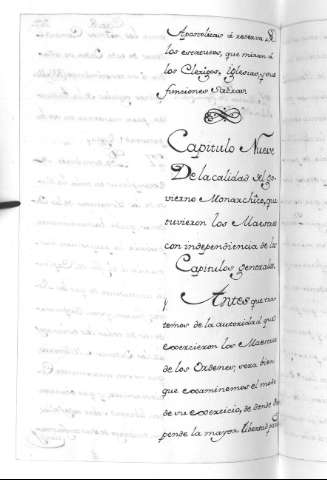 Apostolicas á reserva de
los excesos, que miran á
los Clerigos, Iglesias, y sus
funciones Sacras.
Capitulo Nueve
De la calidad del go-
vierno Monarchico, que
tuvieron los Maestres
con independiencia de los
Capitulos generales.
Antes que tra-
temos de la autoridad que
exercieron los Maestres
de los Ordenes, sera bien
que examinemos el modo
de su exercicio, de donde de-
pende la mayor